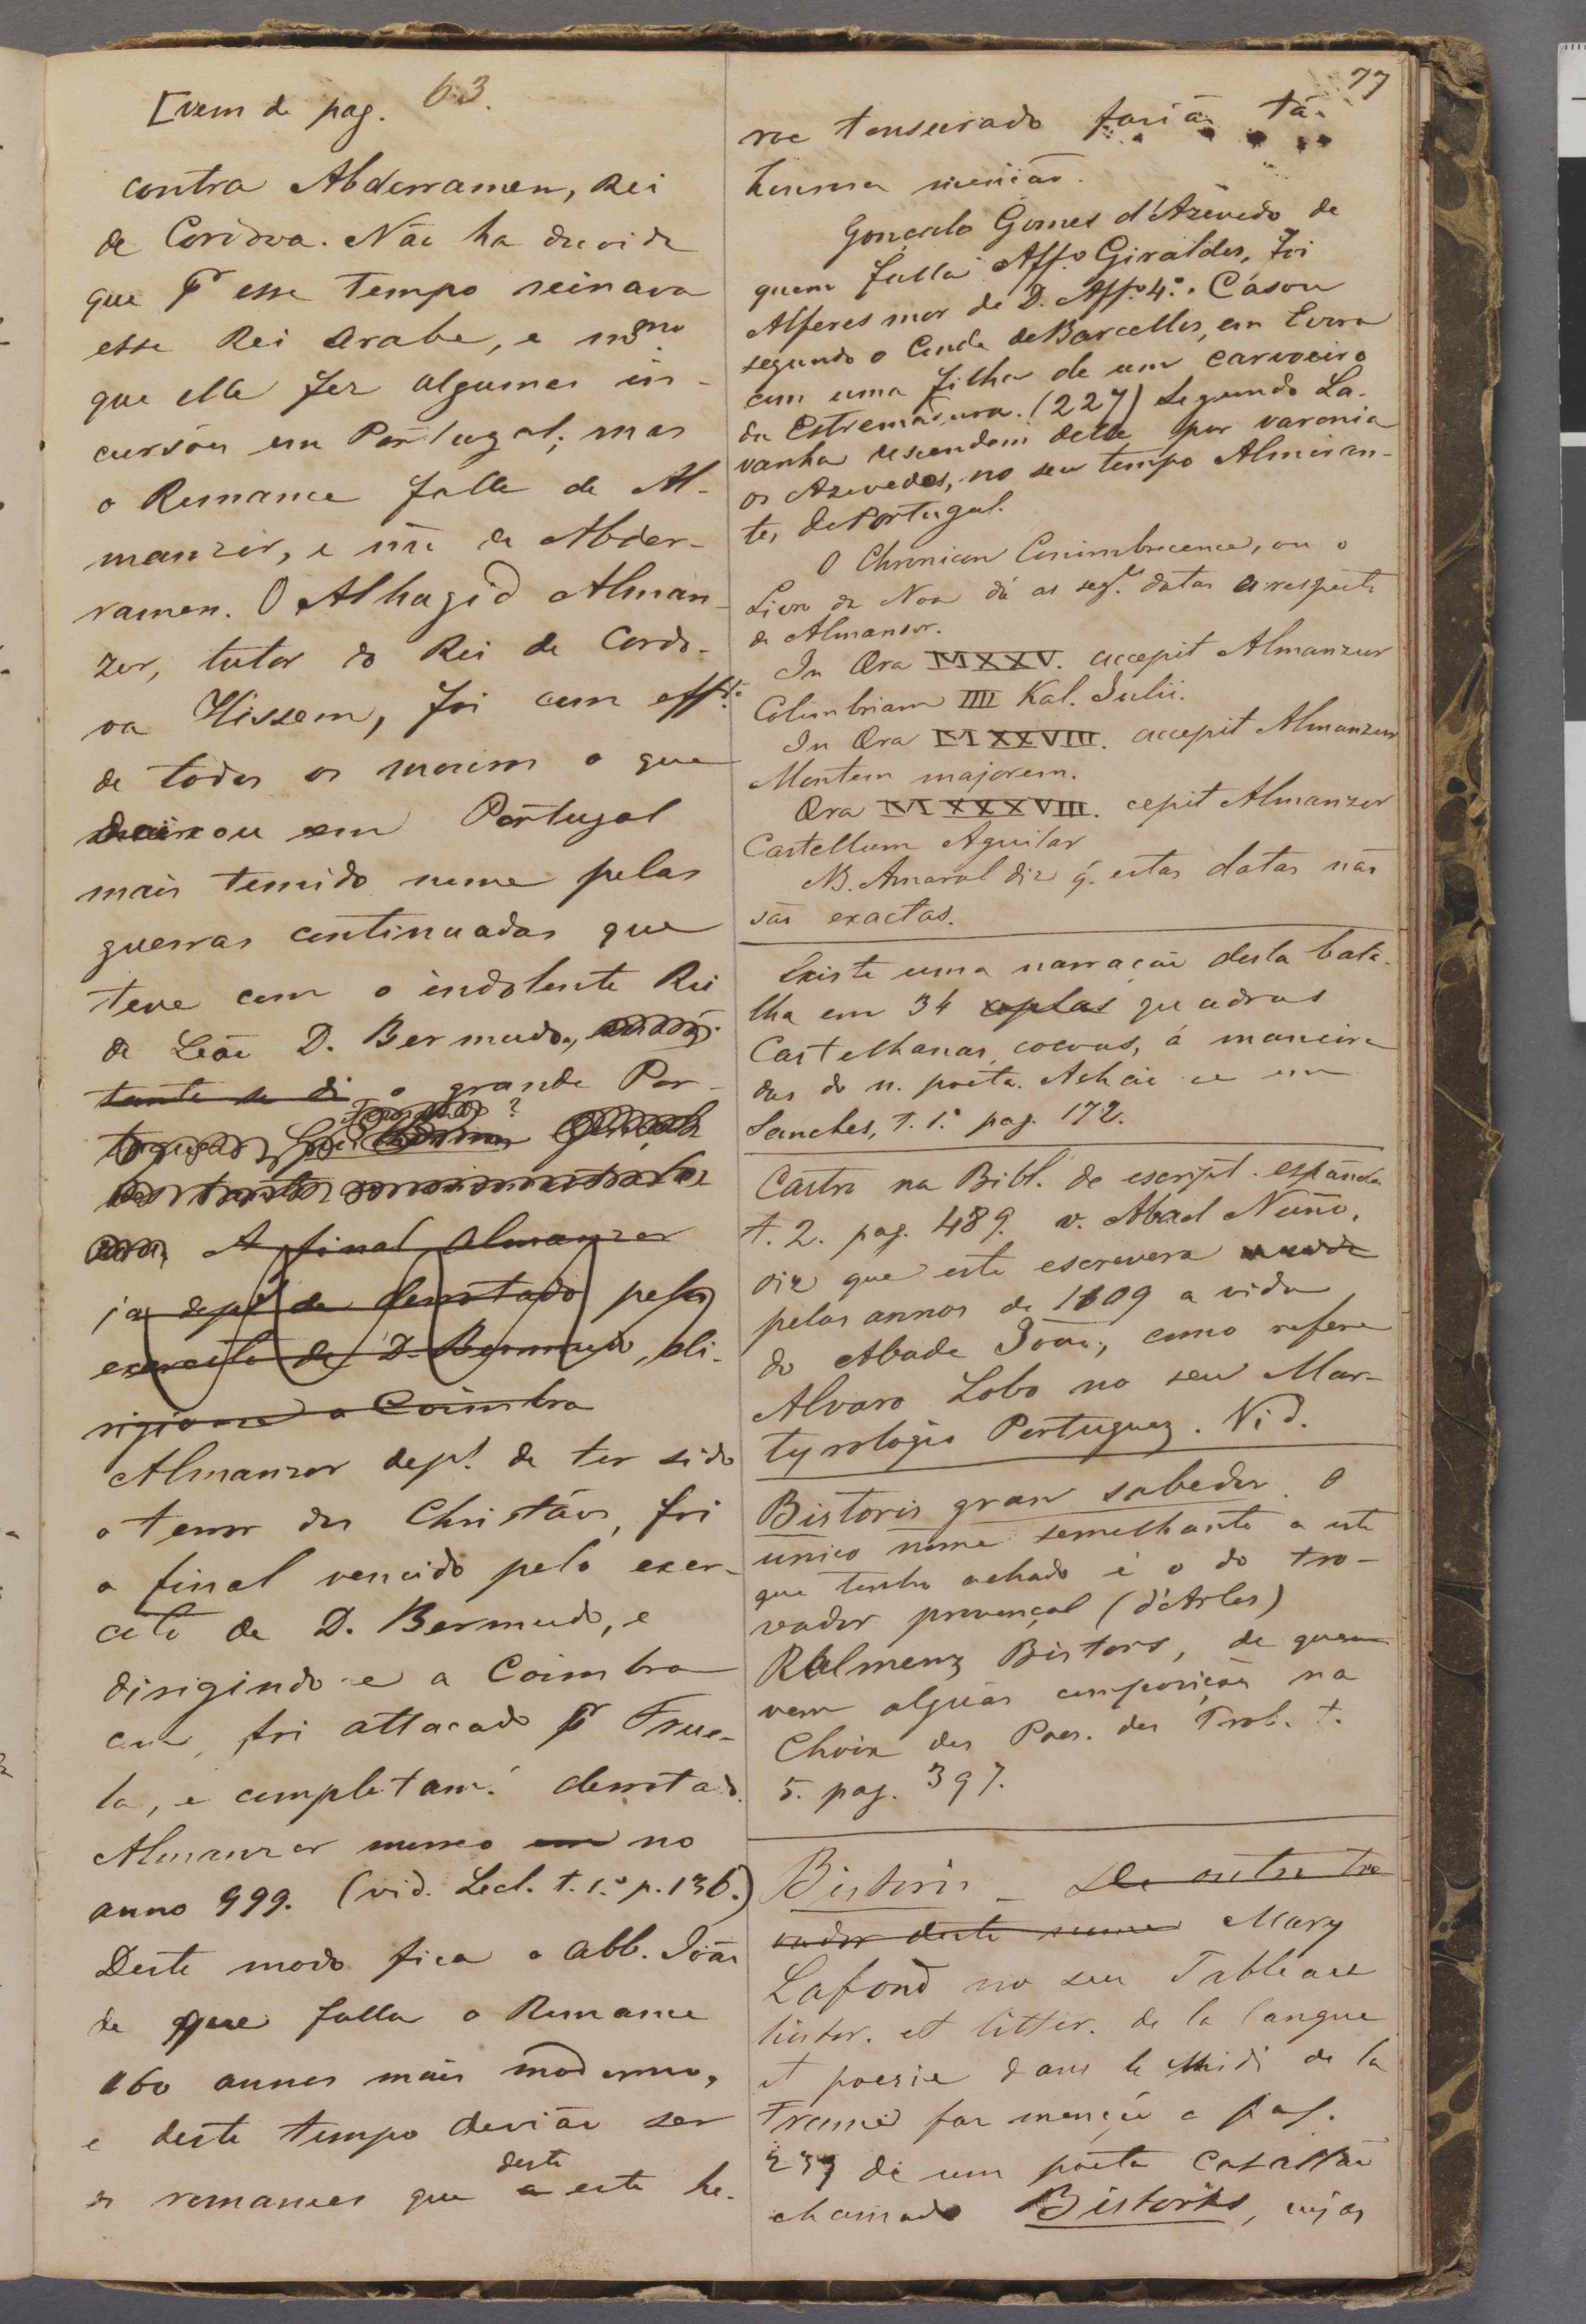 [vem de pag. 63.
contra Abderramen, Rei
de Cordova. Não ha duvida
que pr esse tempo reinava
esse Rei Arabe, e mmo
que elle fez algumas in-
cursões em Portugal; mas
o Romance falla de Al-
manzor, e não de Abder-
ramen. O Alhagid Alman-
zor, tutor do Rei de Cordo-
va Hissem, foi com effto
de todos os mouros o que
deixou em Portugal
mais temido nome pelas
guerras continuadas que
teve com o indolente Rei
de Leão D. Bermudo,
tante se di o grande Por-
A final Almanzor
ja dept de derrotado pelo
exercito de D. Bermudo, di-
rigiome a Coimbra
Almanzor dept. de ter sido
o terror dos Christãos, foi
a final vencido pelo exer-
cito de D. Bermudo, e
dirigindo-se a Coimbra
foi attacado pr Frue-
la, e completamt. derrotado.
Almanzor morreo em no
anno 999. (vid. Lecl. t. 1.º p. 136.)
Deste modo fica o abb. João
de que falla o Romance
160 annos mais moderno,
e deste tempo devião ser
deste
os romances que a este he-
77
roe tonsurado farião tã-
bem menção.
Gonçalo Gomes d'Azevedo de
quem falla Affº Giraldes, foi
Alferes mor de D. Affº 4.º. Casou
segundo o Conde de Barcellos, em Evora
com uma filha de um carvoeiro
da Estremadura. (227) Segundo La-
vanha descendem delle por varonia
os Azevedos, no seu tempo Almiran-
tes de Portugal.
O Chronicon Conimbricence, ou o
Livro da Noa dá as segtes datas a respeito
de Almansor.
In Æra MXXV. accepit Almanzur
Colimbriam IIII Kal. Julii.
In Æra MXXVIII. accepit Almanzur
Montem majorem.
Æra MXXXVIII. cepit Almanzor
Castellum Aguilar
NB. Amaral diz q. estas datas não
são exactas.
Existe uma narração desta bata-
lha em 34 coplas quadras
Castelhanas, coevas, á maneira
das do n. poeta. Achão-se em
Sanches, t. 1.º pag. 172.
Castro na Bibl. de escript. españoles
t. 2. pag. 489. v. Abad Nuño,
diz que este escrevera
pelos annos de 1109 a vida
do Abade João, como refere
Alvaro Lobo no seu Mar-
tyrologio Portuguez. Vid.
Bistoris gran sabedor. O
unico nome semelhante a este
que tenho achado é o do tro-
vador provençal (d'Arles)
Ralmenz Bistors, de quem
vem alguãs composições na
Choix des Poes. des Troub. t.
5. pag. 397.
Bistoris - De outro tro
vador deste nome Mary
Lafond no seu Tableau
histor. et litter. de la langue
et poesie dans le Midi de la
France faz menção a pag.
237 de um poeta Catallão
chamado Bistorts, cujas